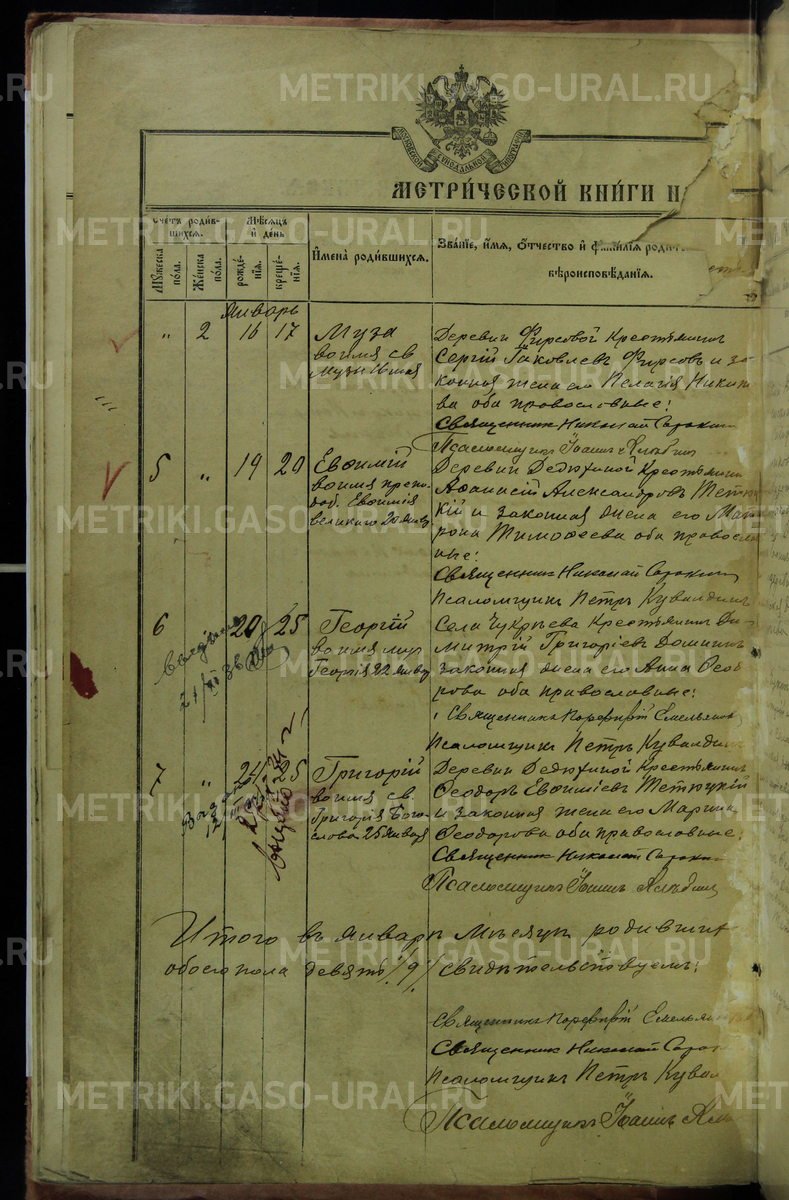 МЕТРИЧЕСКОЙ КНИГИ Н
Счетъ родив-
шихся.
Мужеска пола.
Женска пола.
Мѣсяцъ и день
рожде-
нія.
креще-
нія.
Имена родившихся.
Званіе, имя, отчество и фамилія родит
вѣроисповѣданія.
Январь
" 2 16 17
Муза
во имя св
Музы
Деревни Фирсовой крестьянинъ
Сергій Яковлевъ Фирсовъ и за
конная жена его Пелагія Никит
ва оба православные:
Священникъ Николай Сорокин
Псаломщикъ Іоаннъ
5 " 19 20
Евѳимій
во имя препо-
доб. Евѳимія
великаго 20 янв
Деревни Дедюхиной крестьянин
Аѳанасій Александровъ Тетюц
кій и законная жена его Мат
рона Тимоѳеева оба правосла
ные:
Священникъ Николай Сорокин
Псаломщикъ Петръ Кувалдинъ
6 20 25
Георгій
во имя муч
Георгія 22 янв
Села крестьянинъ Ди-
митрій Григоріевъ Доминъ
законная жена его Анна Ѳеод
рова оба православные:
Священникъ Порфирій Емельянов
Псаломщикъ Петръ Кувалдин
7 " 24 25
Григорій
во имя св.
Григорія Бого-
слова 25 Января
Деревни Дедюхиной крестьянинъ
Ѳеодоръ Евѳиміевъ Тетюцкій
и законная жена его Марина
Ѳеодорова оба православные.
Священникъ Николай Сорокин
Псаломщикъ Іоаннъ
Итого въ январѣ мѣсяцѣ родивших
обоего пола девять /9/ свидѣтельствуемъ:
Священникъ Порфирій Емельянов
Священникъ Николай Сорок
Псаломщикъ Петръ Кувал
Псаломщикъ Іоаннъ
METRIKI.GASO-URAL.RU